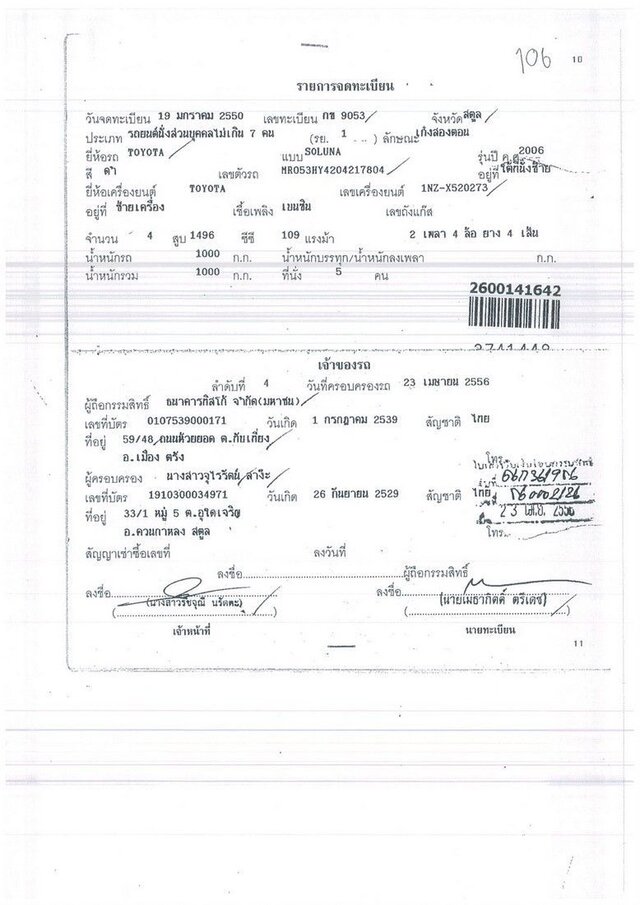 106
10
รายการจดทะเบียน
วันจดทะเบียน 19 มกราคม 2550 เลขทะเบียน กข 9053 จังหวัด สตูล
ประเภท รถยนต์นั่งส่วนบุคคลไม่เกิน 7 คน (รย. 1 ...) ลักษณะ เก๋งสองตอน
ยี่ห้อรถ TOYOTA แบบ SOLUNA รุ่นปี ค.ศ. 2006
สี ดำ เลขตัวรถ MR053HY4204217804 อยู่ที่ ใต้ที่นั่งซ้าย
ยี่ห้อเครื่องยนต์ TOYOTA เลขเครื่องยนต์ 1NZ-X520273
อยู่ที่ ซ้ายเครื่อง เชื้อเพลิง เบนซิน เลขถังแก๊ส
จำนวน 4 สูบ 1496 ซีซี 109 แรงม้า 2 เพลา 4 ล้อ ยาง 4 เส้น
น้ำหนักรถ 1000 ก.ก. น้ำหนักบรรทุก/น้ำหนักลงเพลา ก.ก.
น้ำหนักรวม 1000 ก.ก. ที่นั่ง 5 คน
2600141642
เจ้าของรถ
ลำดับที่ 4 วันที่ครอบครองรถ 23 เมษายน 2556
ผู้ถือกรรมสิทธิ์ ธนาคารทิสโก้ จำกัด(มหาชน)
เลขที่บัตร 0107539000171 วันเกิด 1 กรกฎาคม 2539 สัญชาติ ไทย
ที่อยู่ 59/48 ถนนห้วยยอด ต.ทับเที่ยง
อ.เมือง ตรัง
โทร.
ผู้ครอบครอง นางสาวจุไรวัตย์ ลาง๊ะ
เลขที่บัตร 1910300034971 วันเกิด 26 กันยายน 2529 สัญชาติ ไทย
ที่อยู่ 33/1 หมู่ 5 ต.อุใดเจริญ
23 เม.ย. 2556
อ.ควนกาหลง สตูล
โทร.
สัญญาเช่าซื้อเลขที่ ลงวันที่
ลงชื่อ ผู้ถือกรรมสิทธิ์
ลงชื่อ ลงชื่อ
(นายเมธากิตติ์ ตรีเดช)
เจ้าหน้าที่ นายทะเบียน
11